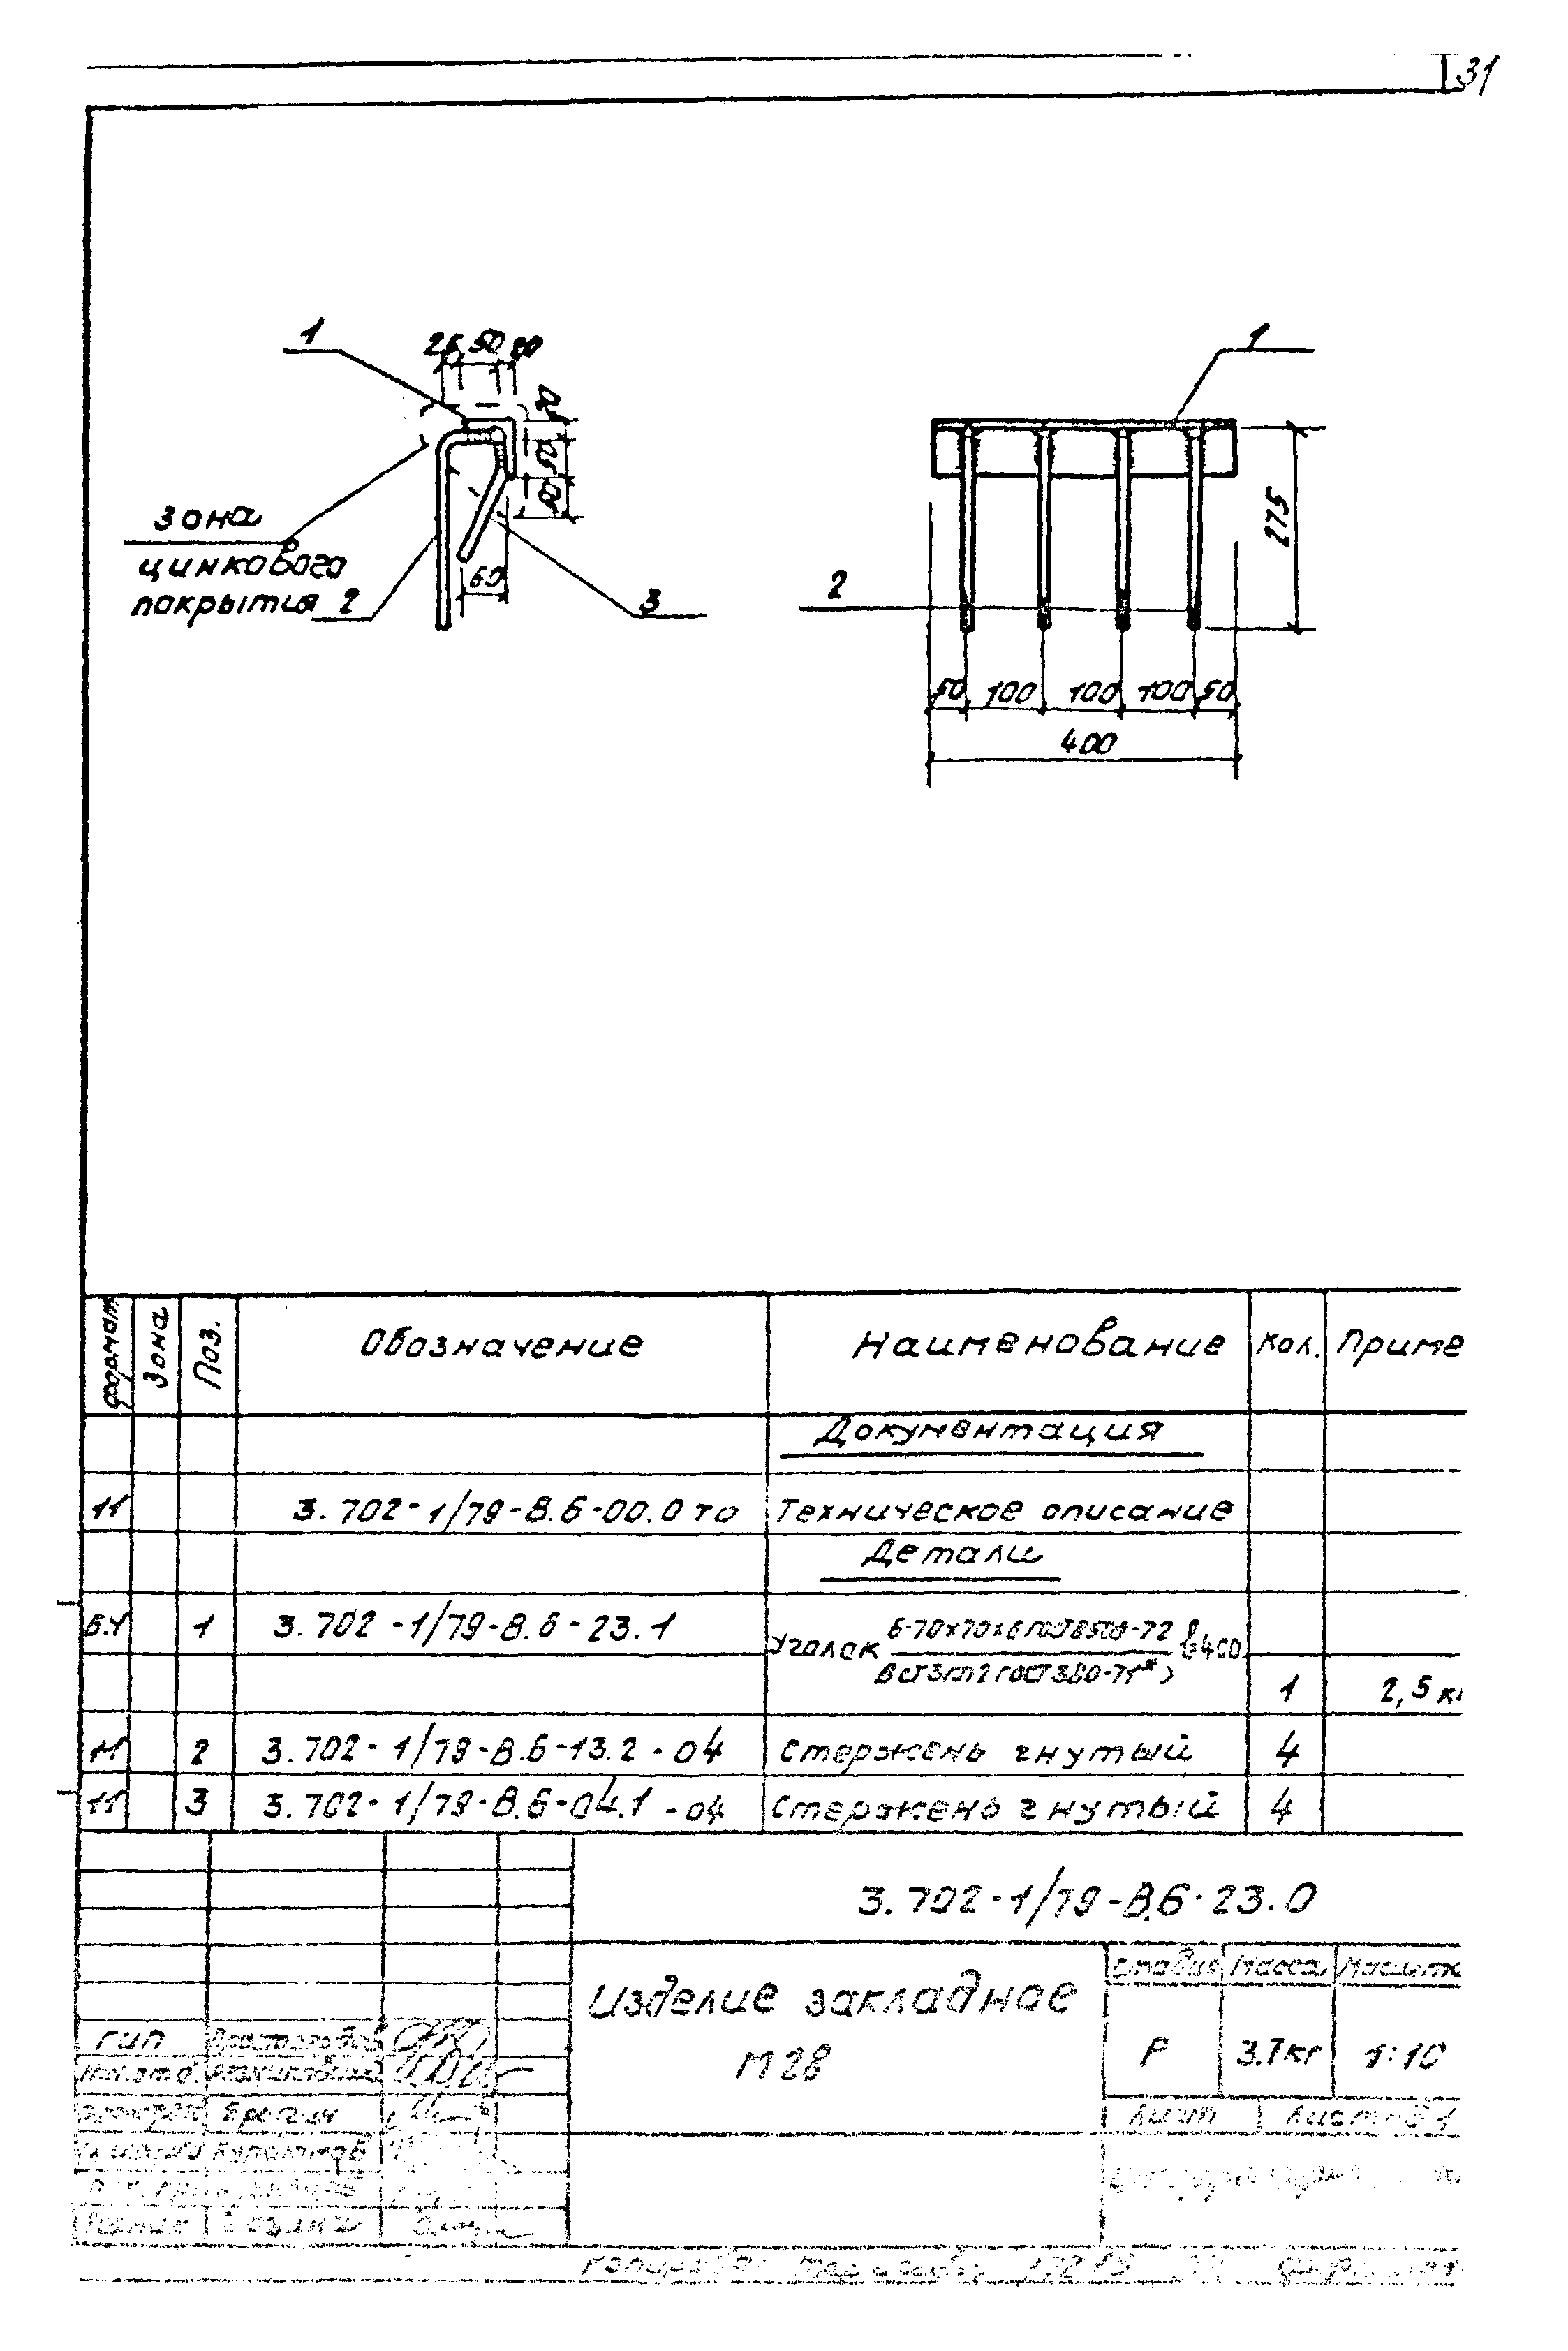 31
1
25 50 20
20
70
60
зона
цинкового
покрытия
2
60
3
1
275
2
50 100 100 100 50
400
Формат Зона Поз. Обозначение Наименование Кол. Приме
Документация
11 3.702-1/79-В.6-00.0 ТО Техническое описание
Детали
Б.Ч 1 3.702-1/79-В.6-23.1 Уголок Б-70х70х6 ГОСТ 8509-72 ℓ=400
ВСт3кп2 ГОСТ 380-71*
1 2,5 кг
11 2 3.702-1/79-В.6-13.2-04 Стержень гнутый 4
11 3 3.702-1/79-В.6-04.1-04 Стержень гнутый 4
3.702-1/79-В.6-23.0
Изделие закладное
М28
Стадия Масса Масшт
Р 3.7кг 1:10
Лист Листов 1
ГИП
Нач.отд.
Брагин
Копировал